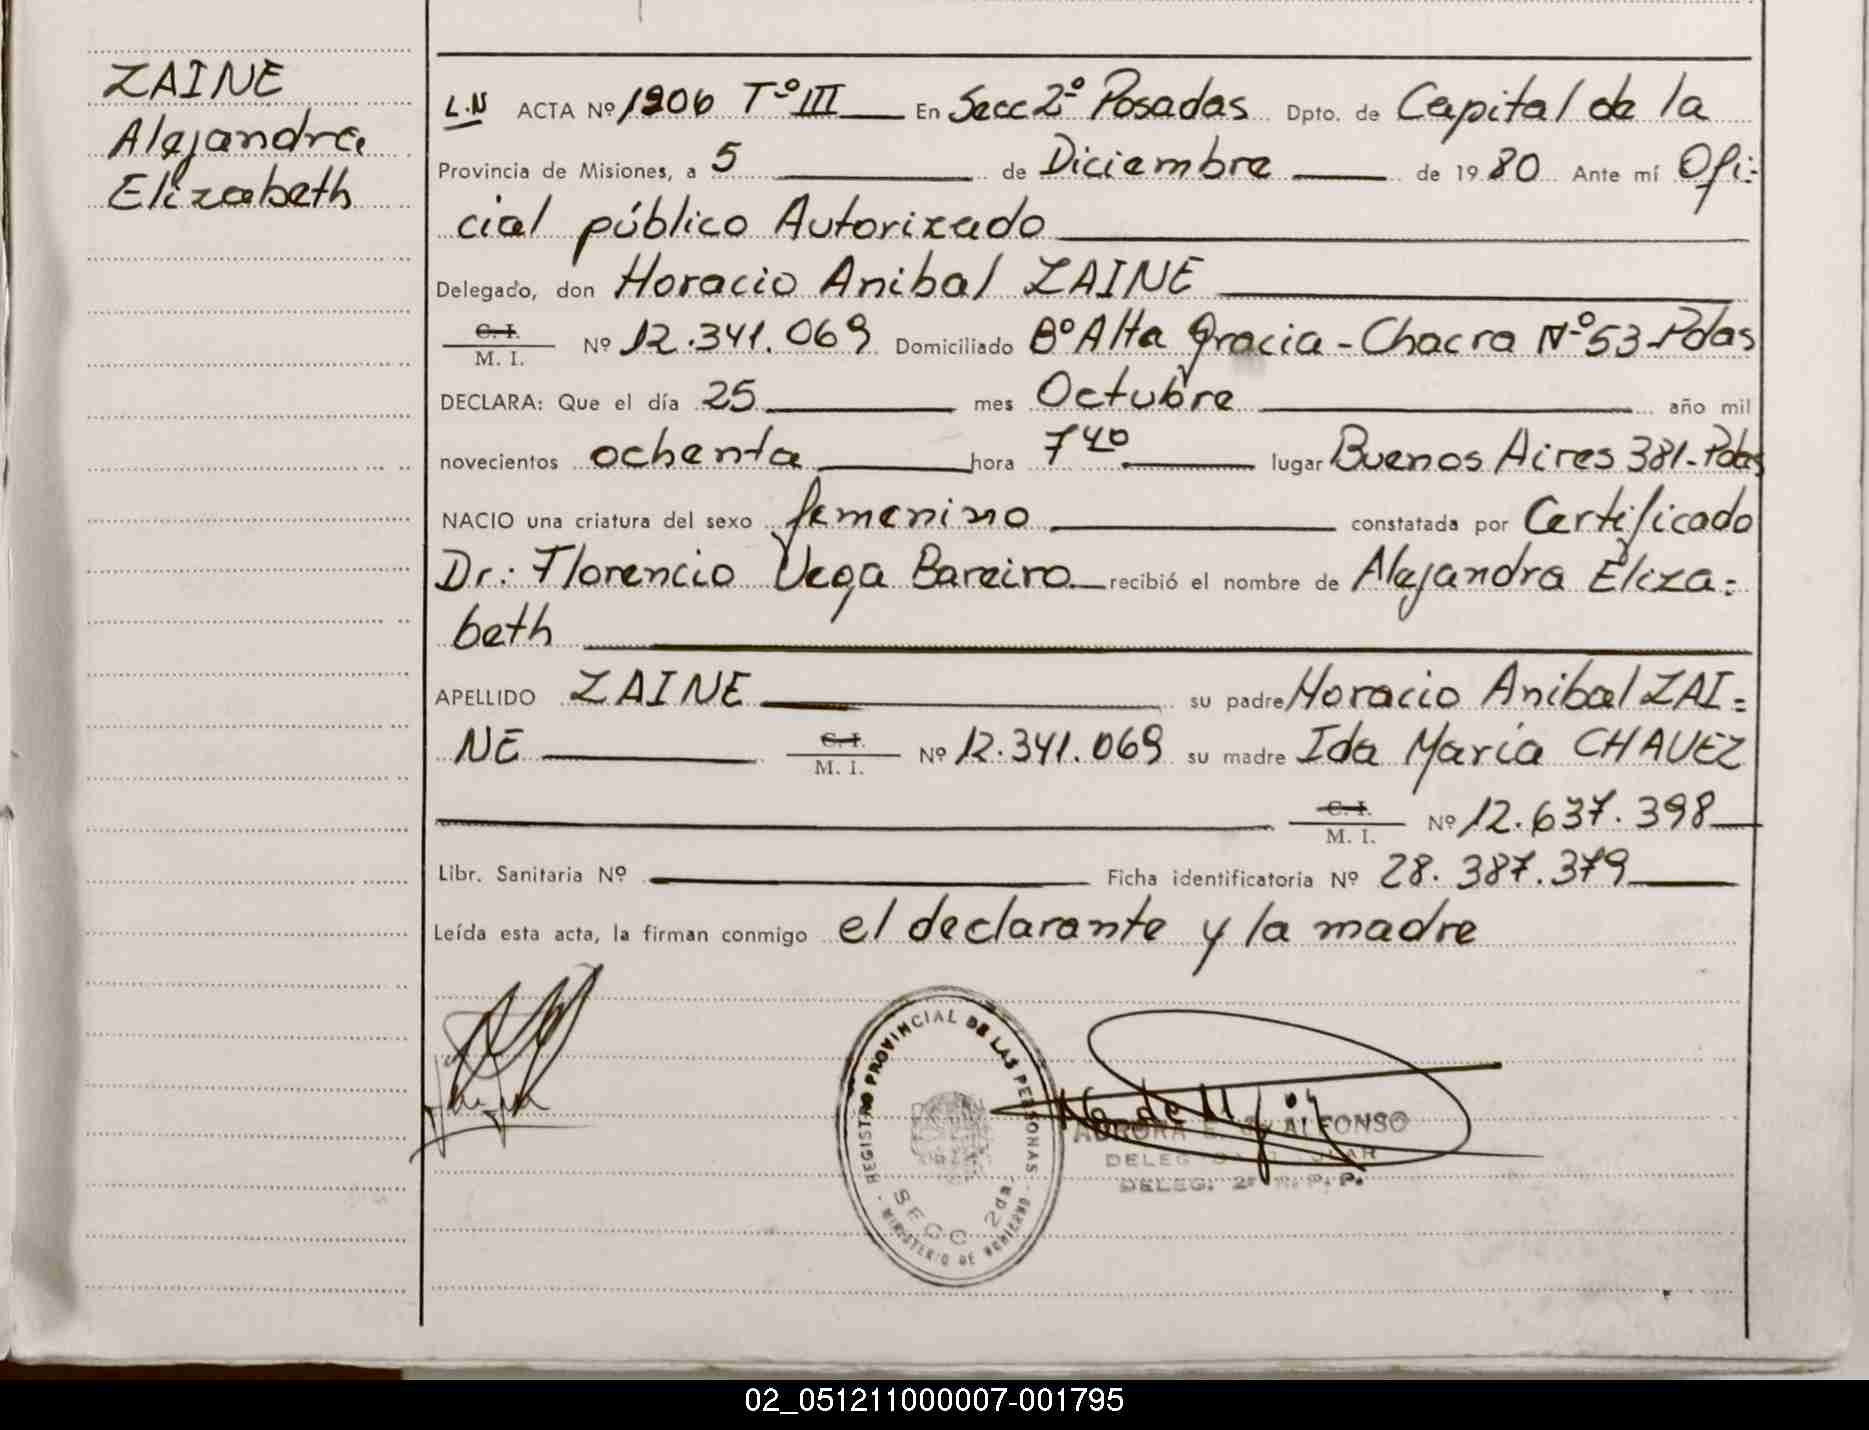 ZAINE
Alejandra
Elizabeth
L.N ACTA Nº 1906 Tº III En Secc 2º Posadas Dpto. de Capital de la
Provincia de Misiones, a 5 de Diciembre de 1980 Ante mí Ofi-
cial público Autorizado
Delegado, don Horacio Anibal ZAINE
C. I.
M. I. Nº 12.341.069 Domiciliado Bº Alta Gracia - Chacra Nº 53 - Pdas
DECLARA: Que el día 25 mes Octubre año mil
novecientos ochenta hora 7 40 lugar Buenos Aires 381 - Pdas
NACIO una criatura del sexo femenino constatada por Certificado
Dr.: Florencio Vega Bareiro recibió el nombre de Alejandra Eliza=
beth
APELLIDO ZAINE su padre Horacio Anibal ZAI=
NE C. I.
M. I. Nº 12.341.069 su madre Ida María CHAVEZ
C. I.
M. I. Nº 12.637.398
Libr. Sanitaria Nº Ficha identificatoria Nº 28.387.379
Leída esta acta, la firman conmigo el declarante y la madre
REGISTRO PROVINCIAL DE LAS PERSONAS
SECC 2da
MINISTERIO DE GOBIERNO
AURORA E. ALFONSO
DELEG
DELEG. 2ª R. P. P.
02_051211000007-001795